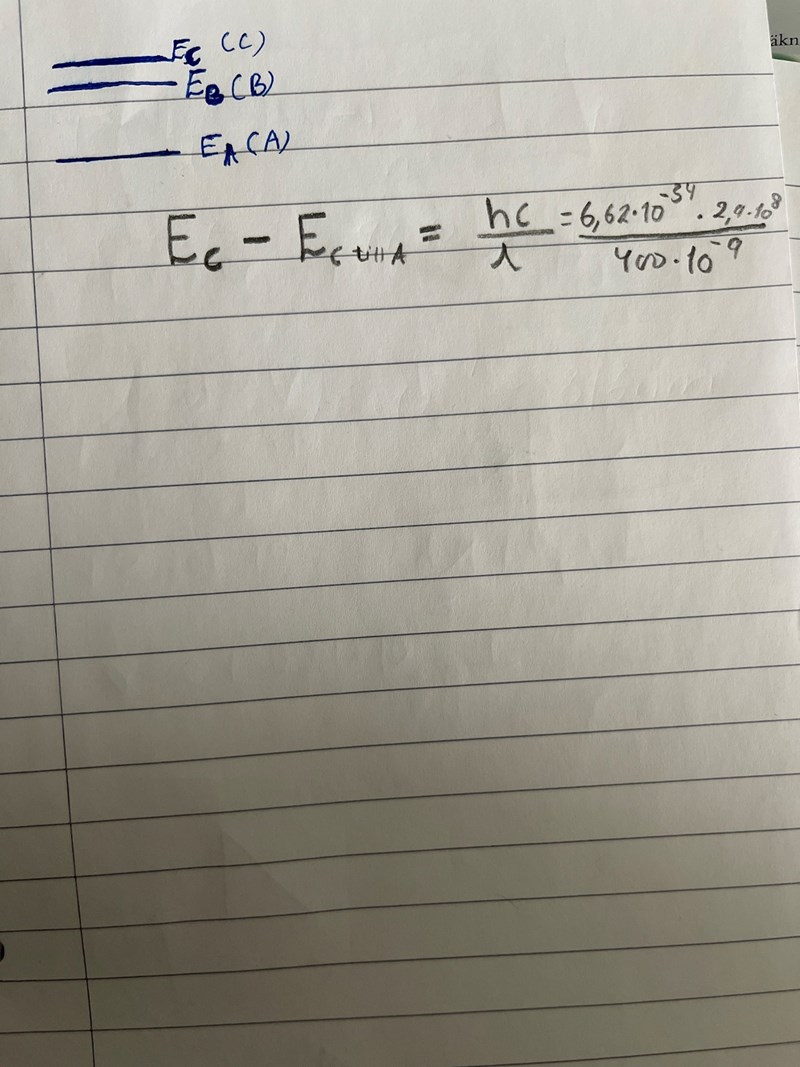 E_C (C)
E_B (B)
E_A (A)
E_C - E_{C till A} = \frac{hc}{λ} = \frac{6,62·10^{-34} · 2,9·10^8}{400·10^{-9}}
äkn